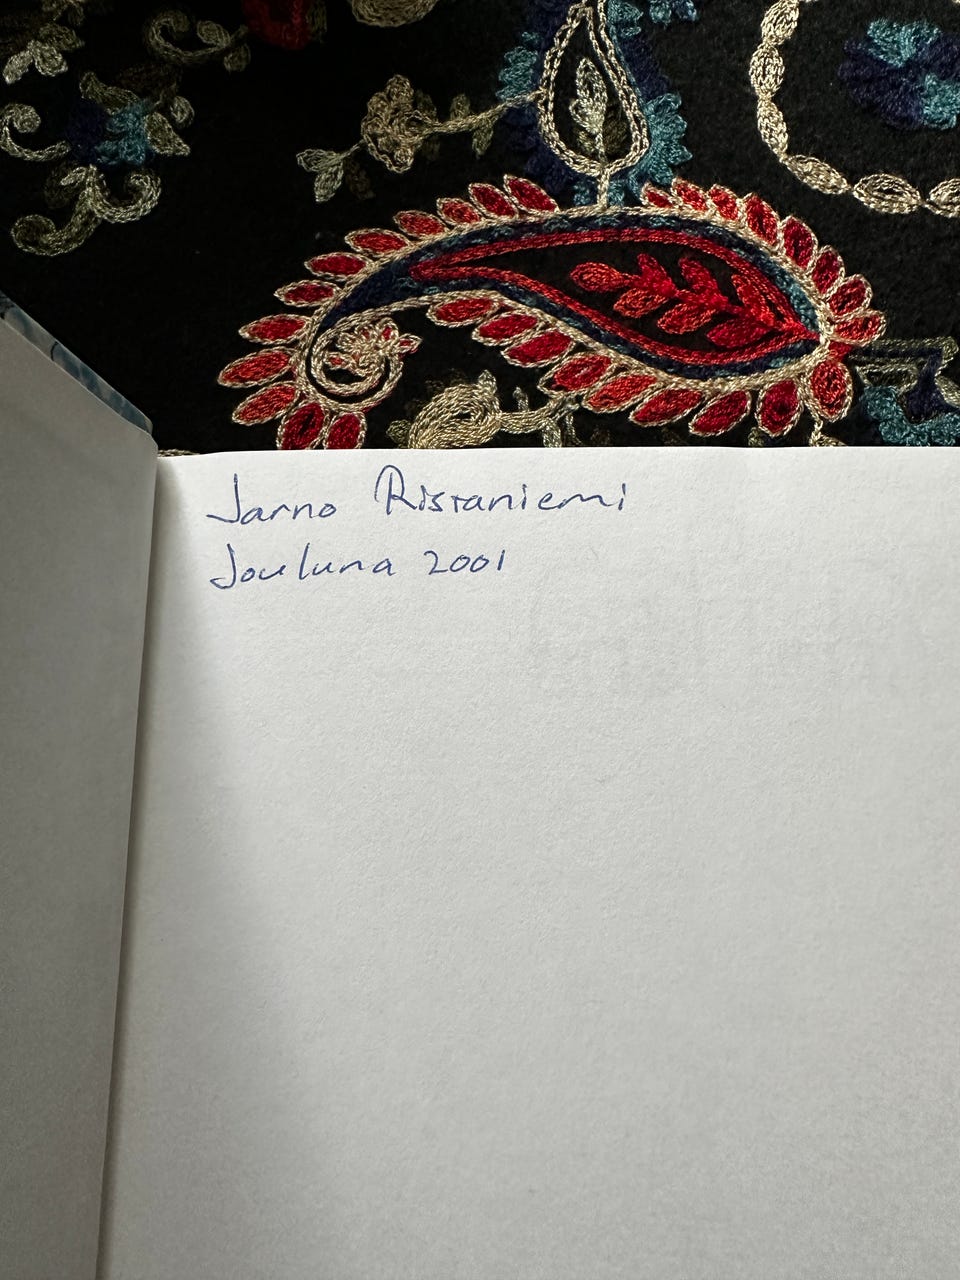 Jarno Ristaniemi
Jouluna 2001